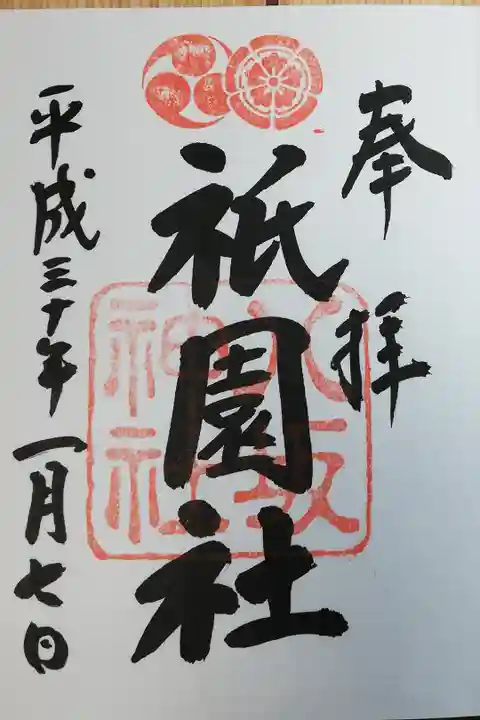 奉拝
祇園社
八坂
神社
平成三十年一月七日